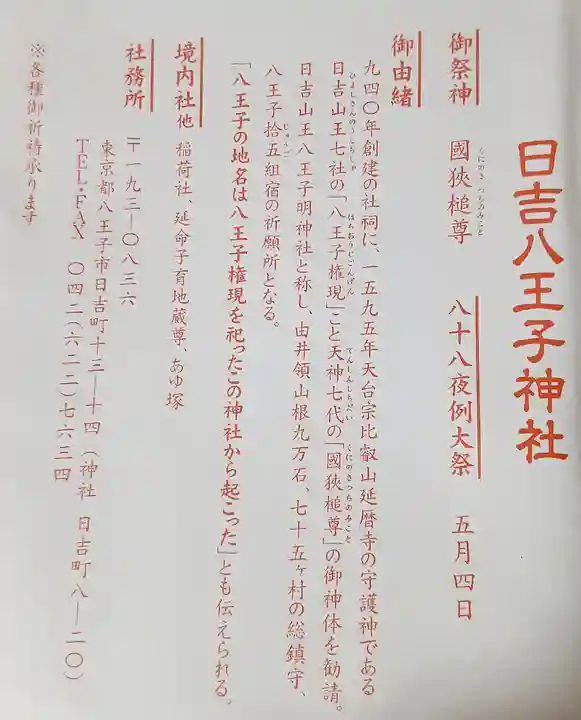 日吉八王子神社
御祭神　國狹槌尊　八十八夜例大祭　五月四日
くにのさつちのみこと
御由緒
九四〇年創建の社祠に、一五九五年天台宗比叡山延暦寺の守護神である
日吉山王七社の「八王子権現」こと天神七代の「國狹槌尊」の御神体を勧請。
ひよしさんのうしちしゃ　はちおうじごんげん　てんしんしちだい　くにのさつちのみこと
日吉山王八王子明神社と称し、由井領山根九万石、七十五ヶ村の総鎮守、
八王子拾五組宿の祈願所となる。
じゅうご
「八王子の地名は八王子権現を祀ったこの神社から起こった」とも伝えられる。
境内社他　稲荷社、延命子育地蔵尊、あゆ塚
社務所　〒一九三―〇八三六
東京都八王子市日吉町十三―十四（神社　日吉町八―二〇）
TEL・FAX　〇四二（六二二）七六三四
※各種御祈祷承ります